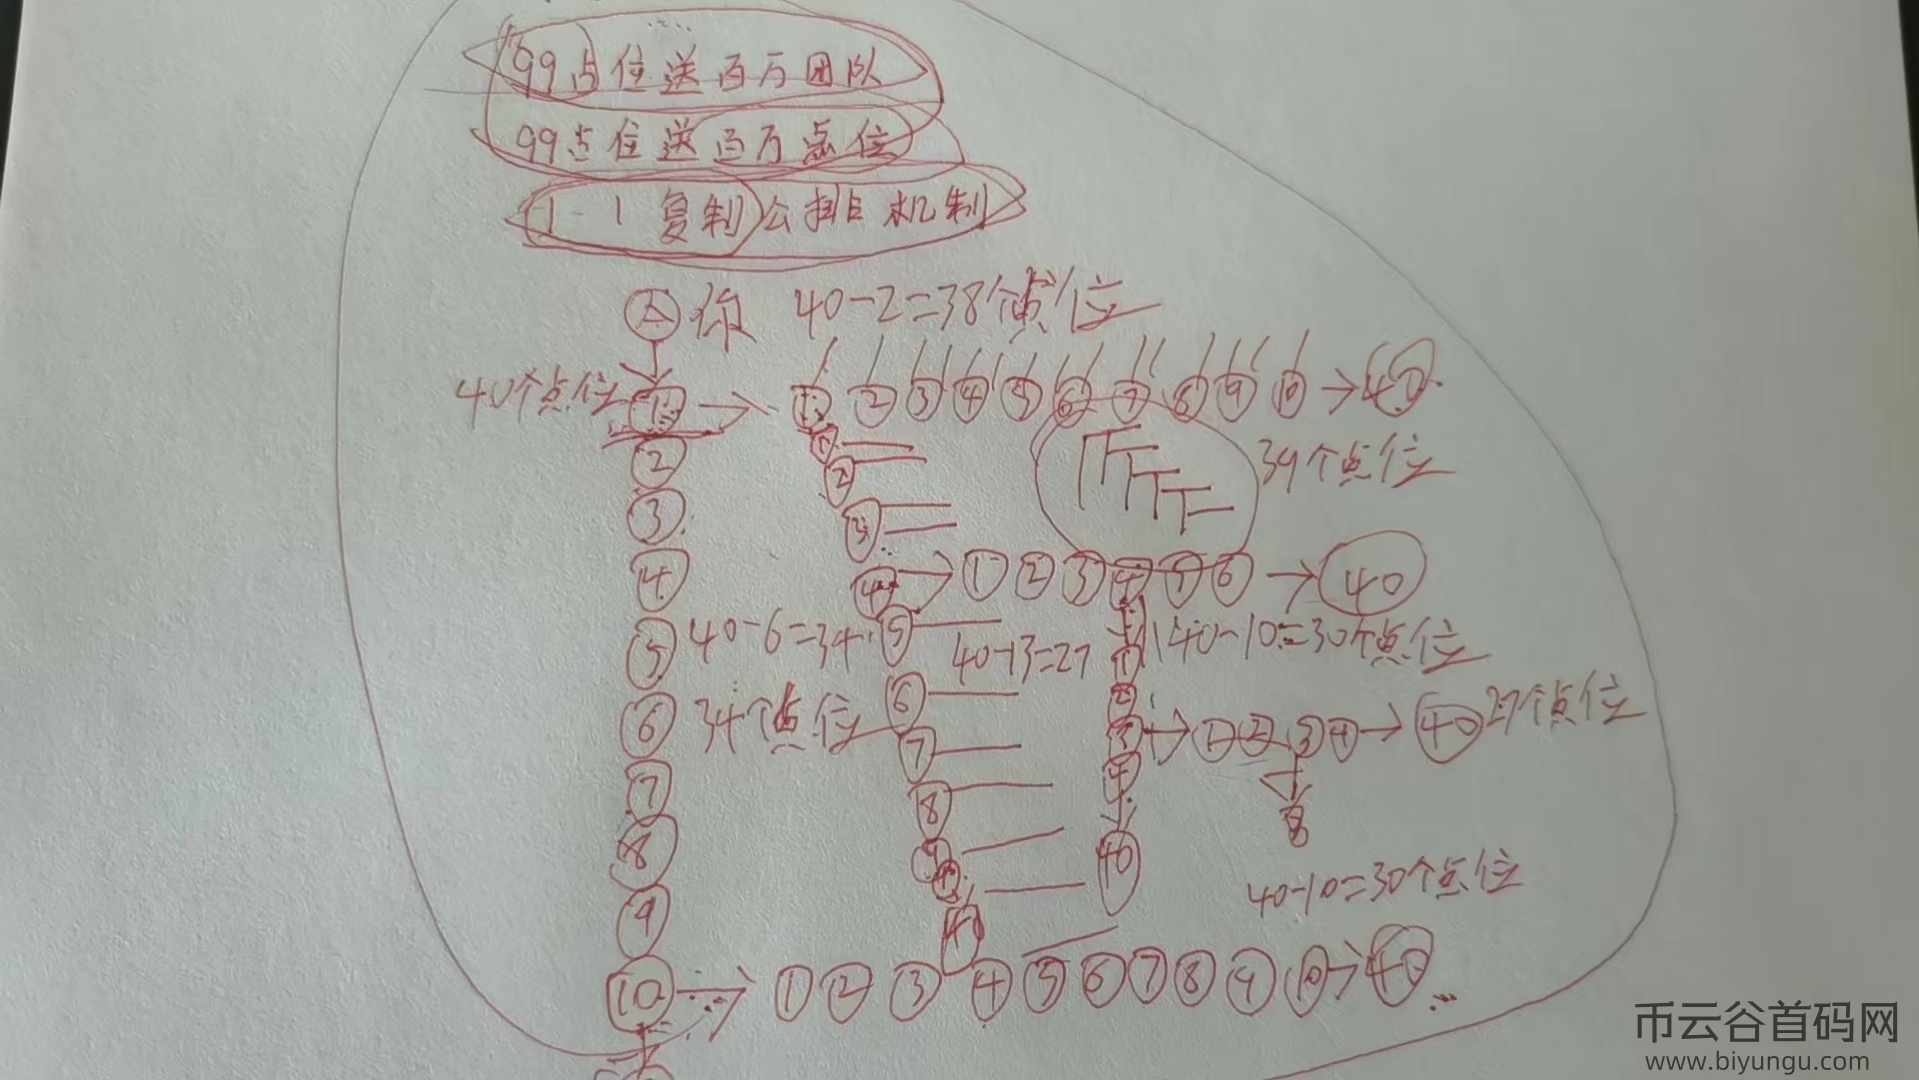 99点位送百万团队
99点位送百万点位
1-1复制公排机制
A 你 40-2=38个点位
40个点位 1 → 1 2 3 4 5 6 7 8 9 10 → 40
1
2 2
39个点位
3 3
4 4 → 1 2 3 4 5 6 → 40
5 40-6=34 5 40-13=27 1 40-10=30个点位
6 34个点位 6 2
7 7 3 → 1 2 3 4 → 40 27个点位
4
8 8 8
9 9 10 40 40-10=30个点位
40
10 → 1 2 3 4 5 6 7 8 9 10 → 40
币云谷首码网
www.biyungu.com